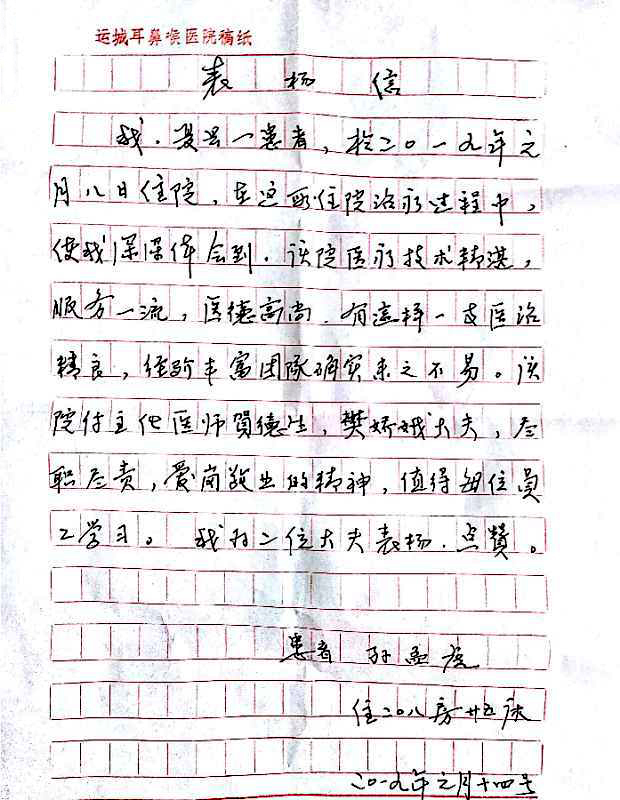 运城耳鼻喉医院稿纸
表扬信
我.是县一患者，于二〇一九年元
月八日住院，在这所住院治疗过程中，
使我深深体会到.该院医疗技术精湛，
服务一流，医德高尚.有这样一支医治
精良，经验丰富团队确实来之不易。该
院付主任医师贺德生，樊娇娥大夫，尽
职尽责，爱岗敬业的精神，值得每位员
工学习。 我为二位大夫表扬.点赞。
患者 孙
住二〇八房廿五床
二〇一九年元月十四号